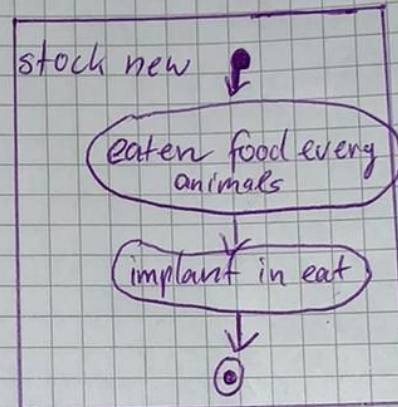 stock new
eaten food every
animals
implant in eat